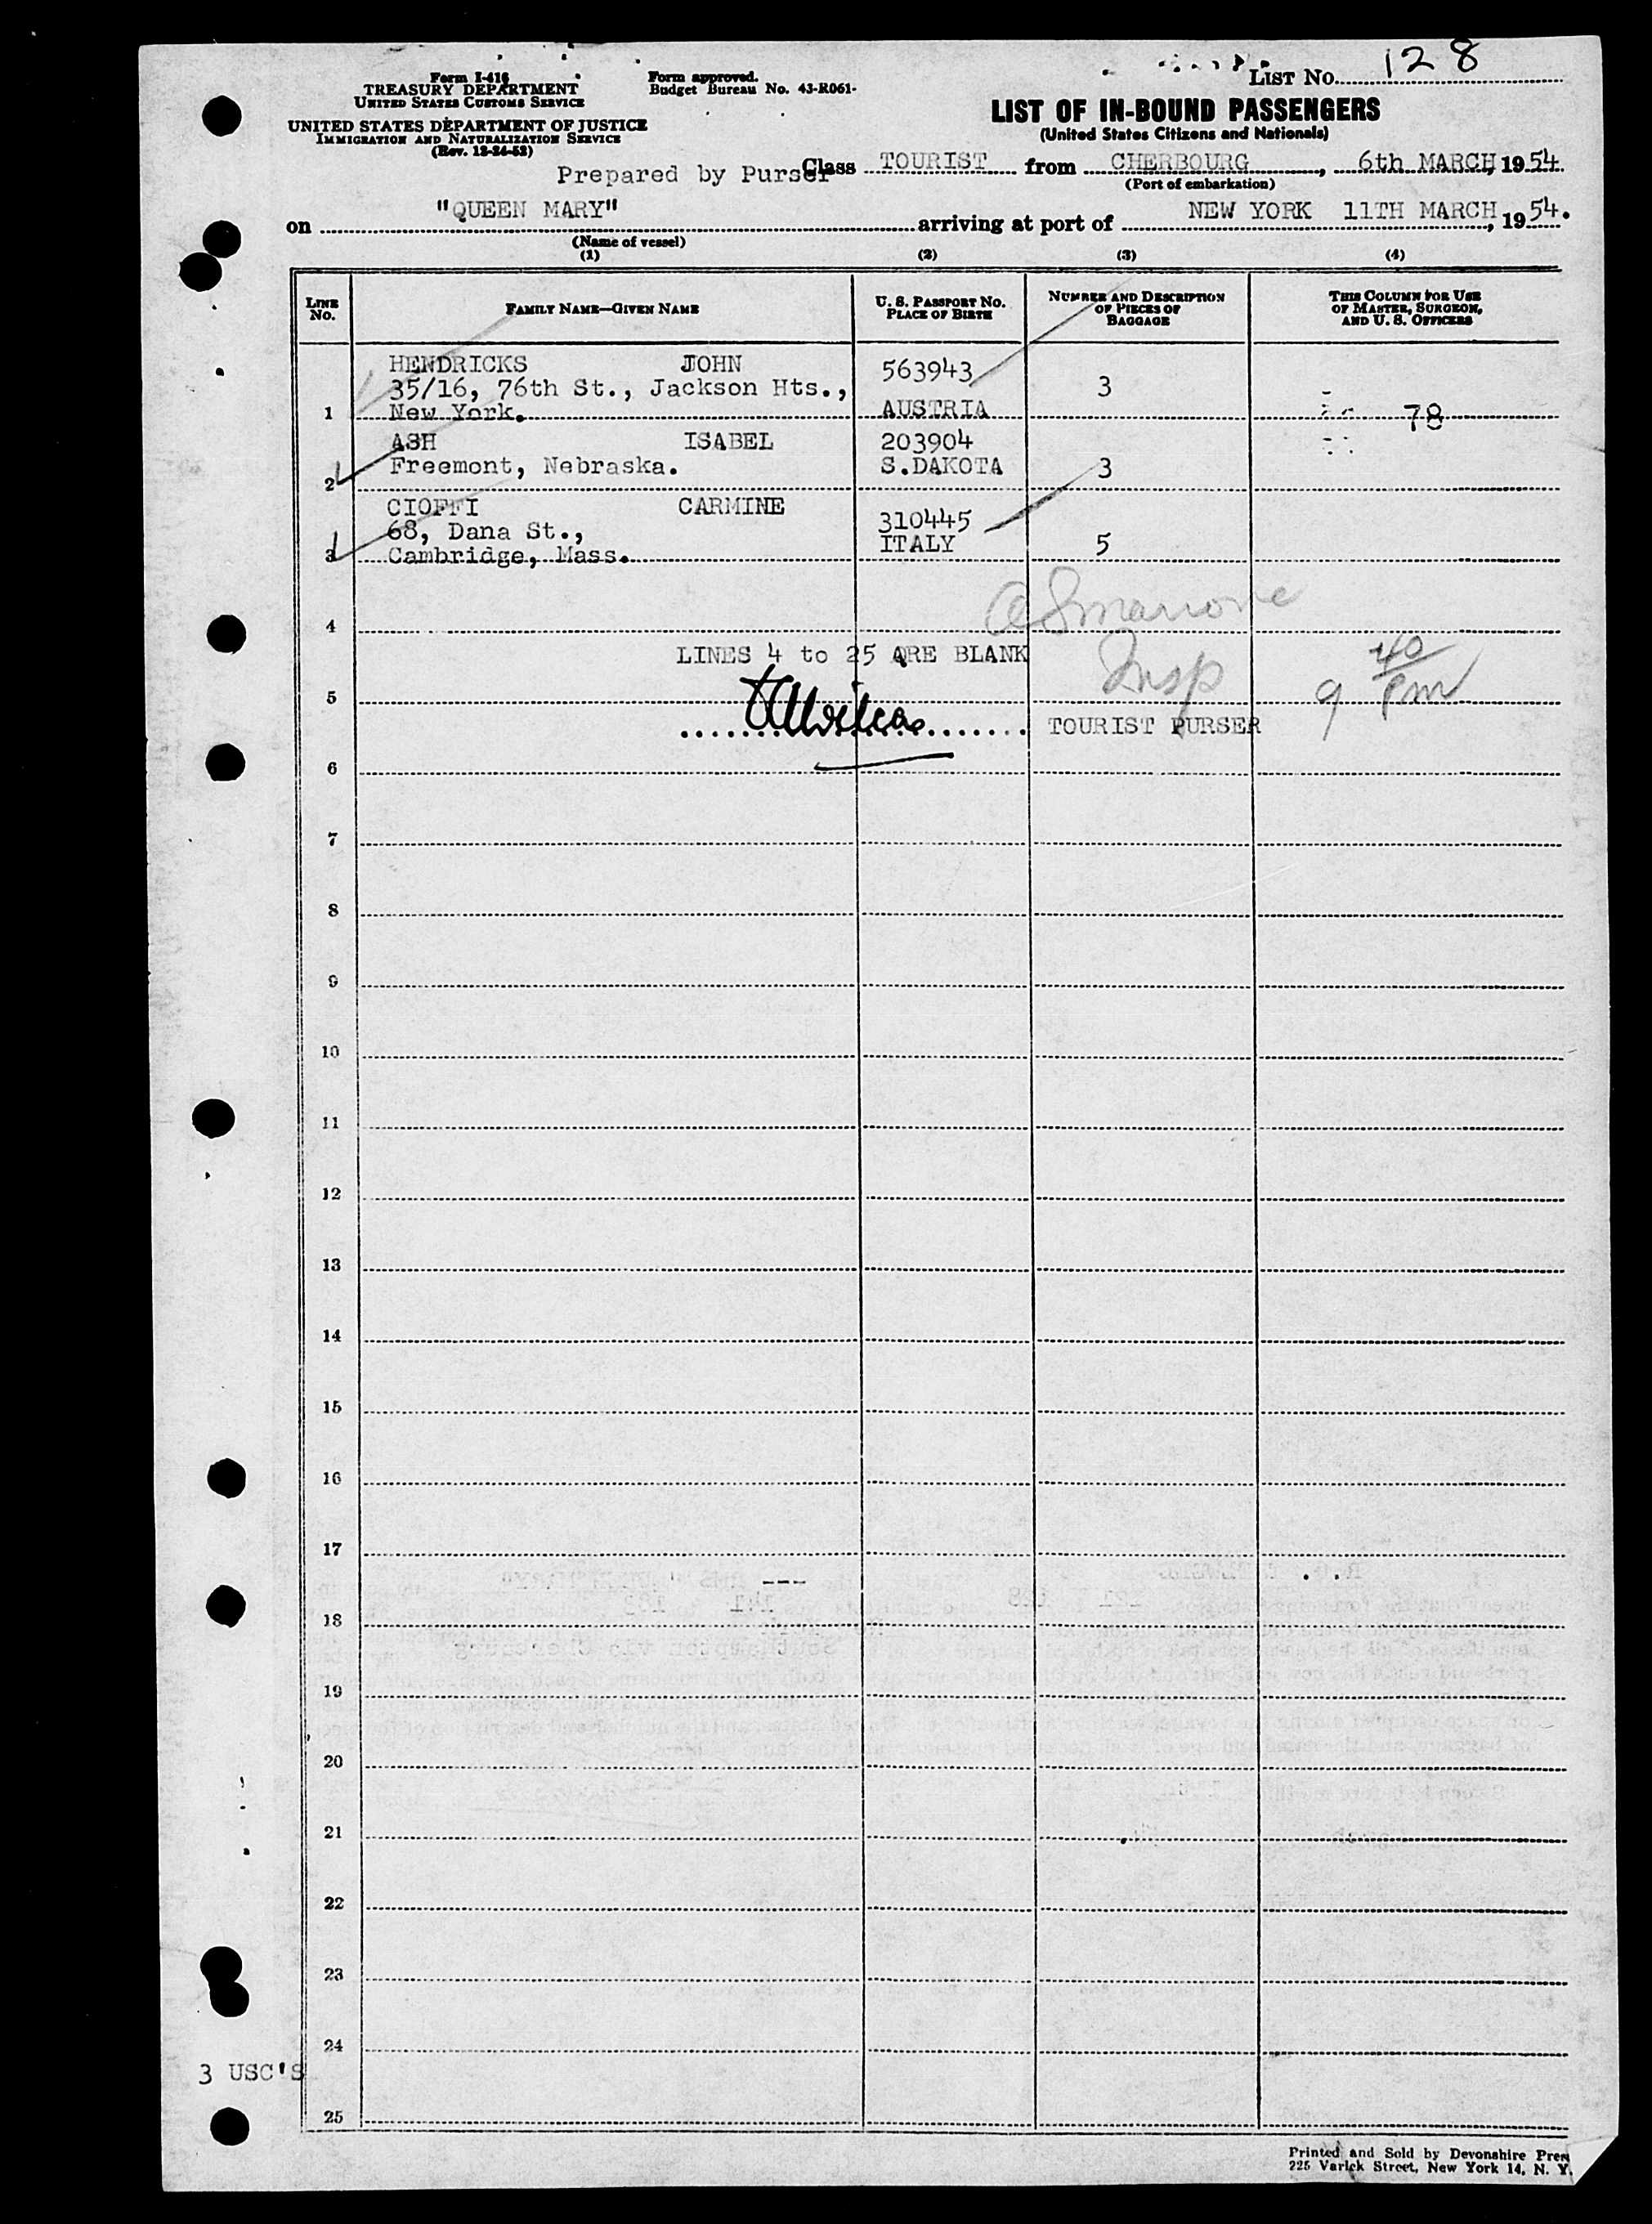 LIST No. 128
Form I-416
TREASURY DEPARTMENT
UNITED STATES CUSTOMS SERVICE
UNITED STATES DEPARTMENT OF JUSTICE
IMMIGRATION AND NATURALIZATION SERVICE
(Rev. 12-24-52)
Form approved.
Budget Bureau No. 43-R061-
LIST OF IN-BOUND PASSENGERS
(United States Citizens and Nationals)
Prepared by Purser
Class TOURIST from CHERBOURG, 6th MARCH, 1954.
(Port of embarkation)
on "QUEEN MARY" arriving at port of NEW YORK 11TH MARCH, 1954.
(Name of vessel)
(1) (2) (3) (4)
LINE No.
FAMILY NAME—GIVEN NAME
U. S. PASSPORT No.
PLACE OF BIRTH
NUMBER AND DESCRIPTION
OF PIECES OF
BAGGAGE
THIS COLUMN FOR USE
OF MASTER, SURGEON,
AND U. S. OFFICERS
HENDRICKS JOHN 563943
35/16, 76th St., Jackson Hts., 3
1 New York. AUSTRIA 78
ASH ISABEL 203904
Freemont, Nebraska. S.DAKOTA 3
2
CIOFFI CARMINE 310445
68, Dana St.,
ITALY 5
3 Cambridge, Mass.
4
LINES 4 to 25 ARE BLANK
Insp 9 40/pm
5
TOURIST PURSER
6
7
8
9
10
11
12
13
14
15
16
17
18
19
20
21
22
23
24
3 USC'S
25
Printed and Sold by Devonshire Press
225 Varick Street, New York 14, N. Y.